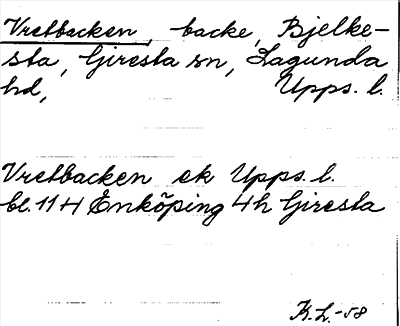 Vretbacken, backe, Bjelke-
sta, Giresta sn, Lagunda
hd, Upps. l.
Vretbacken ek Upps. l.
bl. 11 H Enköping 4h Giresta
K.L. -58